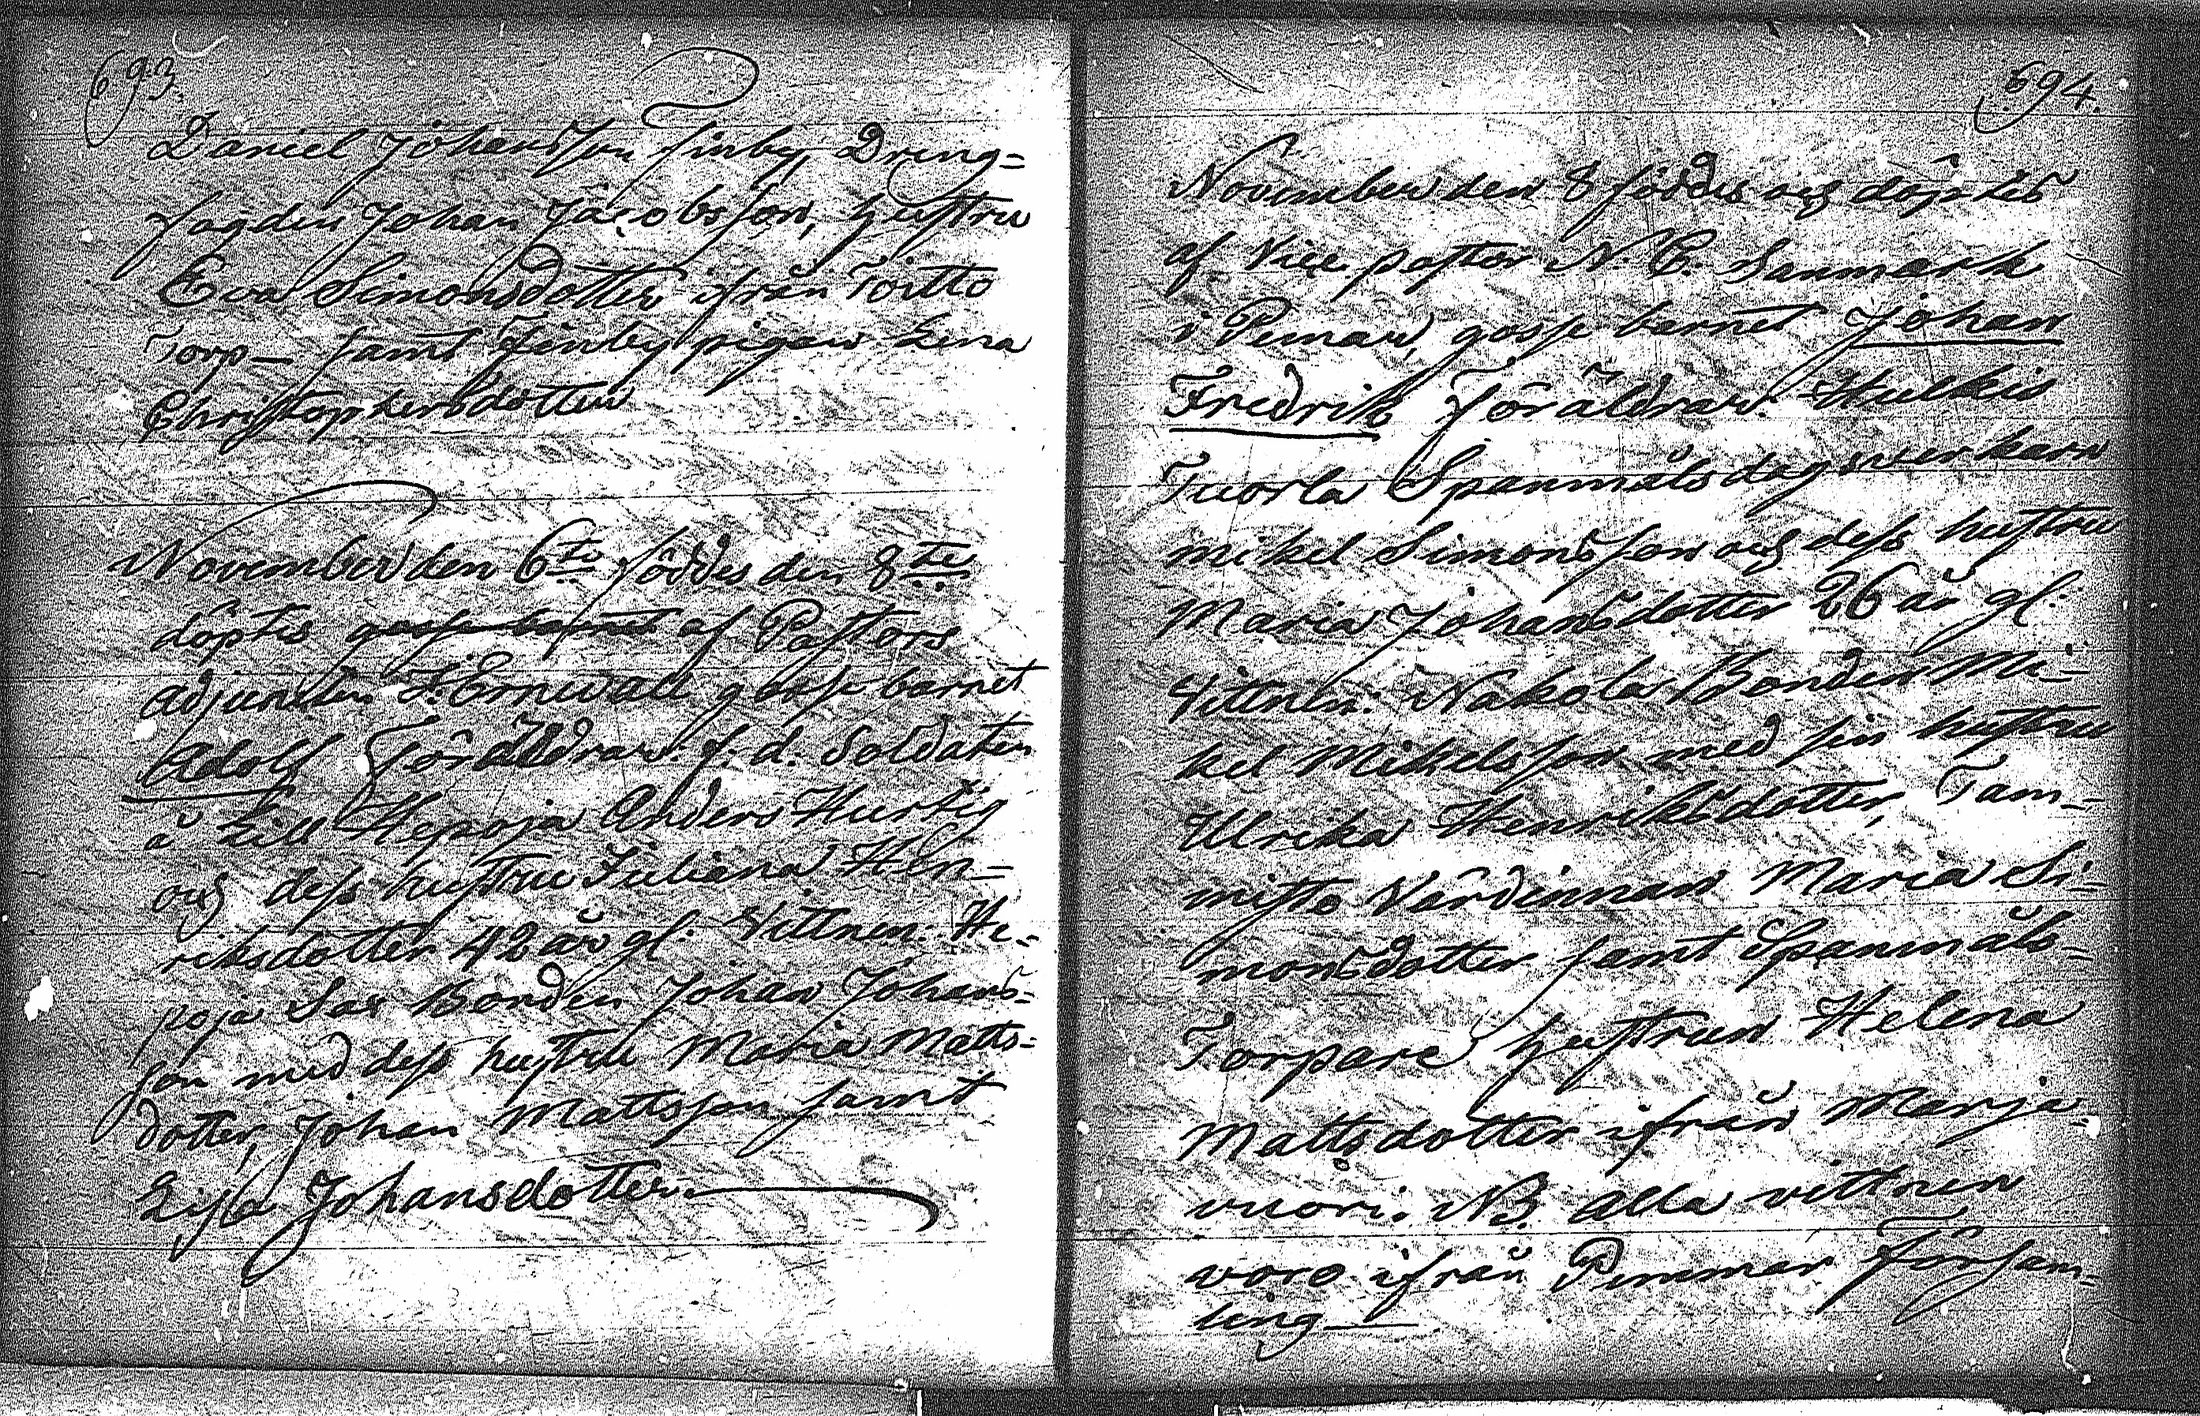 693.
Daniel Johansson Finby Dreng-
fogden Johan Jacobsson, hustru
Eva Simonsdotter ifrån Toitto
Torp – samt Finby pigan Lena
Christophersdotter
November den 6te föddes den 8te
döptes gosse barnet af Pastors
adjuncten F. Ernwall gosse barnet
Adolf Föräldrar: f. d. Soldaten
å Lill Hepoja Anders Hurtig
och dess hustru Juliana Hen-
riksdotter 42 år gl. Vittnen: He-
poja Sax Bonden Johan Johans-
son med dess hustru Maria Matts-
dotter, Johan Mattsson samt
Lisa Johansdotter.
694.
November den 8 föddes och döptes
af Vice pastor N. C. Sanmark
i Pemar, gosse barnet Johan
Fredrik Föräldrar: Hulkis
Tuorla Spanmåls dagsverkarn
Mikel Simonsson och dess hustru
Maria Johansdotter 26 år gl.
Vittnen: Nakola Bonden Mi-
kel Mikelsson med sin hustru
Ulrika Henriksdotter, Tam-
misto Värdinnan Maria Si-
monsdotter samt Spanmåls-
Torpare hustrun Helena
Mattsdotter ifrån Marja-
vuori. NB. alla vittnen
woro ifrån Pemmar Försam-
ling